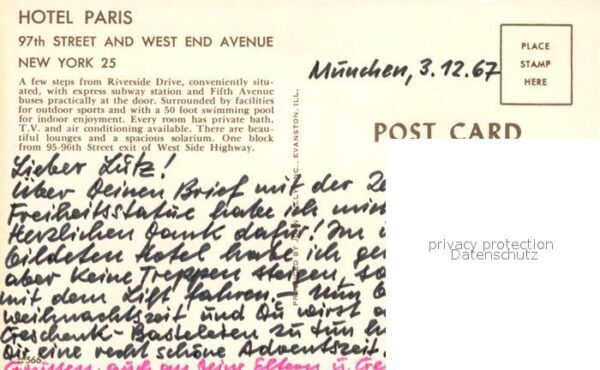 HOTEL PARIS
97th STREET AND WEST END AVENUE
NEW YORK 25
A few steps from Riverside Drive, conveniently situ-
ated, with express subway station and Fifth Avenue
buses practically at the door. Surrounded by facilities
for outdoor sports and with a 50 foot swimming pool
for indoor enjoyment. Every room has private bath.
T.V. and air conditioning available. There are beau-
tiful lounges and a spacious solarium. One block
from 95-96th Street exit of West Side Highway.
PLACE
STAMP
HERE
München, 3.12.67
POST CARD
EVANSTON, ILL.
Lieber Lutz!
Über Deinen Brief mit der
Freiheitsstatue habe ich
Herzlichen Dank dafür! Im
bildeten Hotel habe ich
aber keine Treppen steigen,
mit dem Lift fahren. – Nun
Weihnachtszeit und Du wirst
Geschenk-Basteleien zu tun
Dir eine recht schöne Adventszeit.
auch an Deine Eltern u.
566
privacy protection
Datenschutz